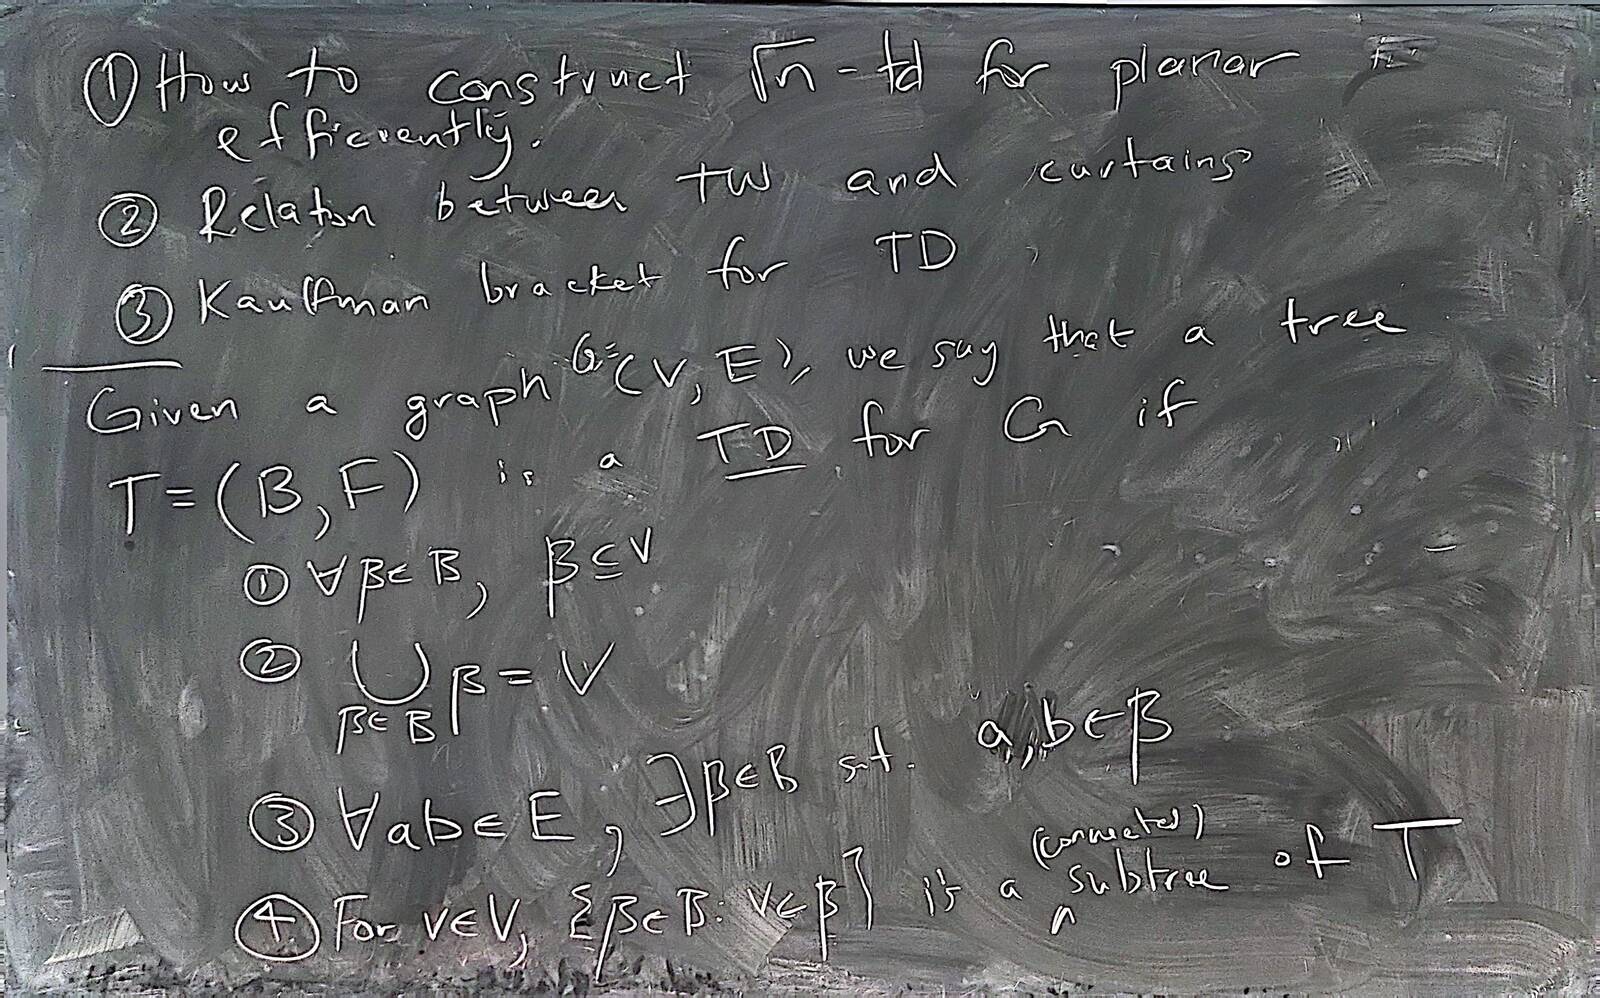 ① How to construct √n-td for planar
efficiently.
② Relation between TW and curtains
③ Kauffman bracket for TD
Given a graph G=(V,E), we say that a tree
T=(B,F) is a TD for G if
① ∀β∈B, β⊆V
② ⋃_{β∈B} β = V
③ ∀ab∈E, ∃β∈B s.t. a,b∈β
④ For v∈V, {β∈B: v∈β} is a (connected) subtree of T